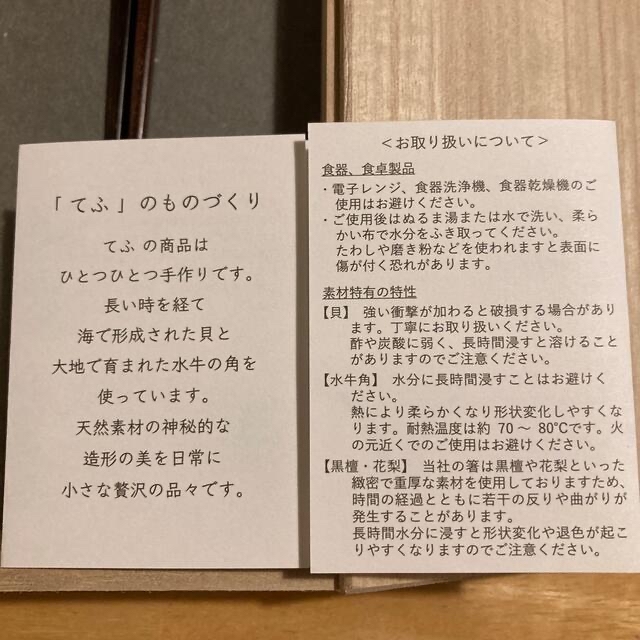 「てふ」のものづくり
てふ の商品は
ひとつひとつ手作りです。
長い時を経て
海で形成された貝と
大地で育まれた水牛の角を
使っています。
天然素材の神秘的な
造形の美を日常に
小さな贅沢の品々です。
＜お取り扱いについて＞
食器、食卓製品
・電子レンジ、食器洗浄機、食器乾燥機のご
使用はお避けください。
・ご使用後はぬるま湯または水で洗い、柔ら
かい布で水分をふき取ってください。
たわしや磨き粉などを使われますと表面に
傷が付く恐れがあります。
素材特有の特性
【貝】 強い衝撃が加わると破損する場合があり
ます。丁寧にお取り扱いください。
酢や炭酸に弱く、長時間浸すと溶けること
がありますのでご注意ください。
【水牛角】 水分に長時間浸すことはお避けく
ださい。
熱により柔らかくなり形状変化しやすくな
ります。耐熱温度は約 70 ～ 80°Cです。火
の元近くでのご使用はお避けください。
【黒檀・花梨】 当社の箸は黒檀や花梨といった
緻密で重厚な素材を使用しておりますため、
時間の経過とともに若干の反りや曲がりが
発生することがあります。
長時間水分に浸すと形状変化や退色が起こ
りやすくなりますのでご注意ください。